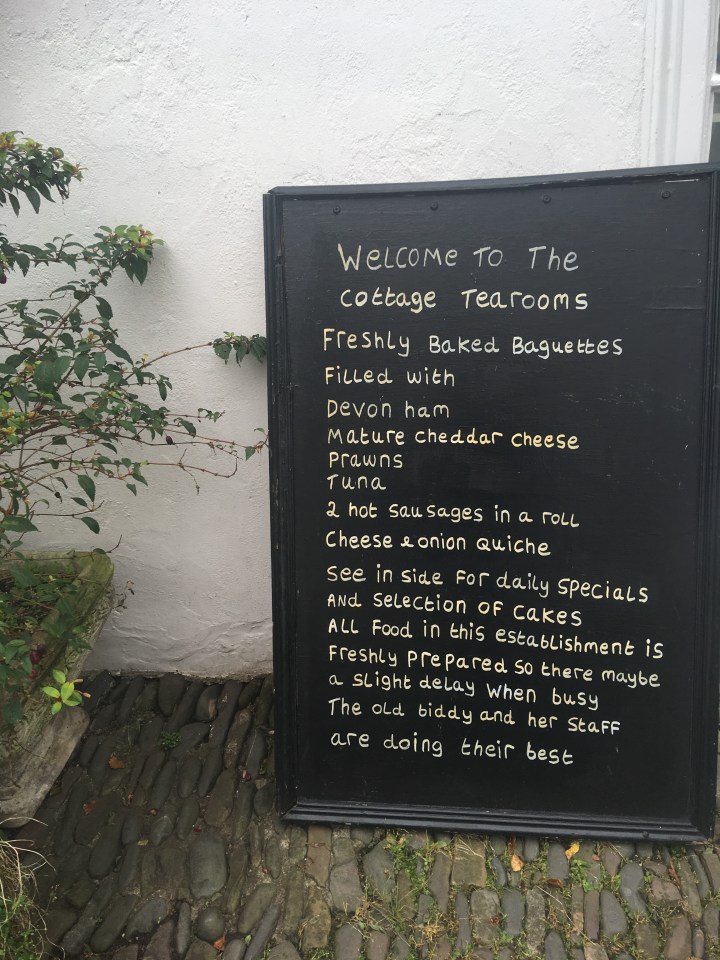 Welcome To The
Cottage Tearooms
Freshly Baked Baguettes
Filled with
Devon ham
Mature cheddar cheese
Prawns
Tuna
2 hot sausages in a roll
Cheese & onion Quiche
See in side for daily specials
And selection of cakes
All food in this establishment is
Freshly Prepared so there maybe
a slight delay when busy
The old biddy and her staff
are doing their best